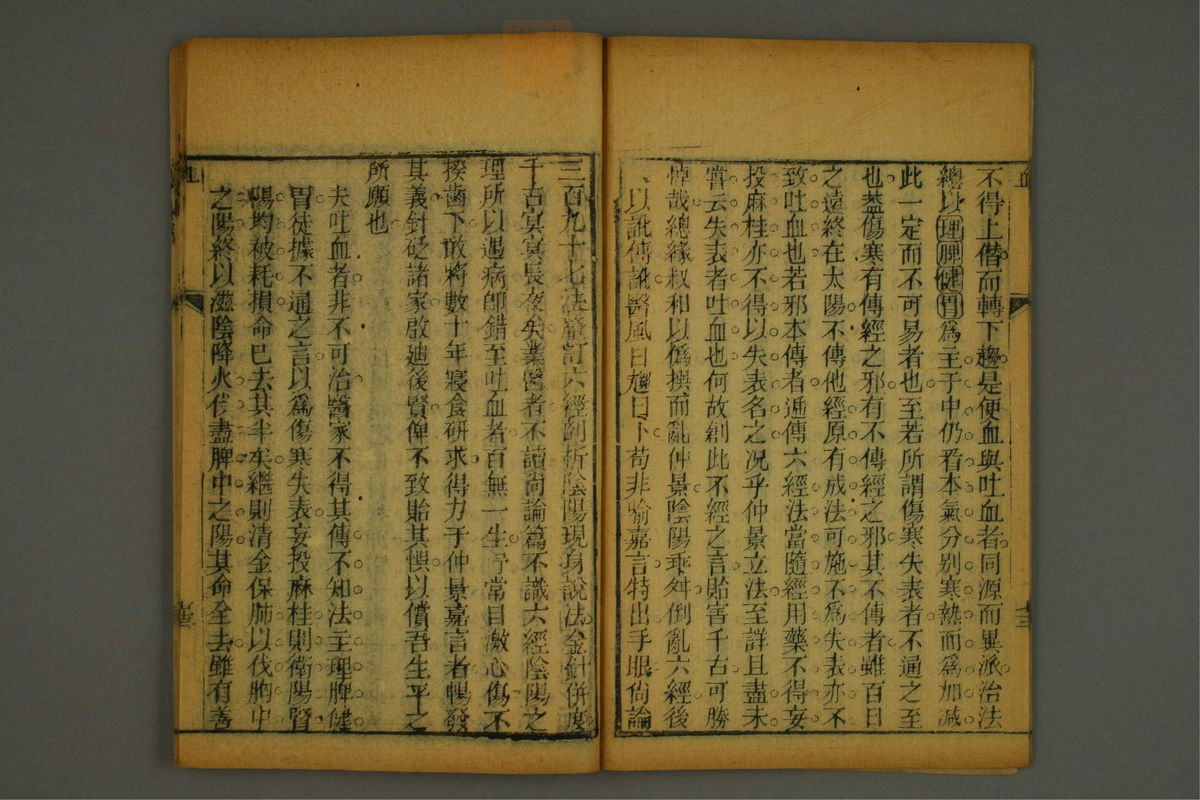 不得上僭而轉下趨是便血與吐血者同源而異派治法
總以理脾健胃爲主于中仍看本氣分别寒熱而爲加減
此一定而不可易者也至若所謂傷寒失表者不通之至
也蓋傷寒有傳經之邪有不傳經之邪其不傳者雖百日
之遠終在太陽不傳他經原有成法可施不爲失表亦不
致吐血也若邪本傳者遞傳六經法當隨經用藥不得妄
投麻桂亦不得以失表名之况乎仲景立法至詳且盡未
嘗云失表者吐血也何故創此不經之言貽害千古可勝
悼哉總緣叔和以僞撰而亂仲景陰陽乖舛倒亂六經後
人以訛傳訛醫風日趨日卜苟非喻嘉言特出手眼尙論
三百九十七法釐訂六經剖析陰陽現身說法金針併度
千古冥冥長夜矣業醫者不讀尙論篇不識六經陰陽之
理所以遇病卽錯至吐血者百無一生予常目激心傷不
揆菑下敢將數十年寢食研求得力于仲景嘉言者暢發
其義針砭諸家啟廸後賢俾不致貽其悞以償吾生平之
所願也
夫吐血者非不可治醫家不得其傳不知法主理脾健
胃徒據不通之言以爲傷寒失表妄投麻桂則衛陽腎
陽均被耗損命已去其半矣繼則清金保肺以伐胸中
之陽終以滋陰降火伐盡脾中之陽其命全去雖有善